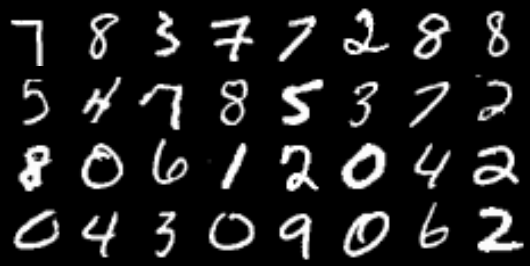 7 8 3 7 7 2 8 8
5 4 7 8 5 3 7 2
8 0 6 1 2 0 4 2
0 4 3 0 9 0 6 2